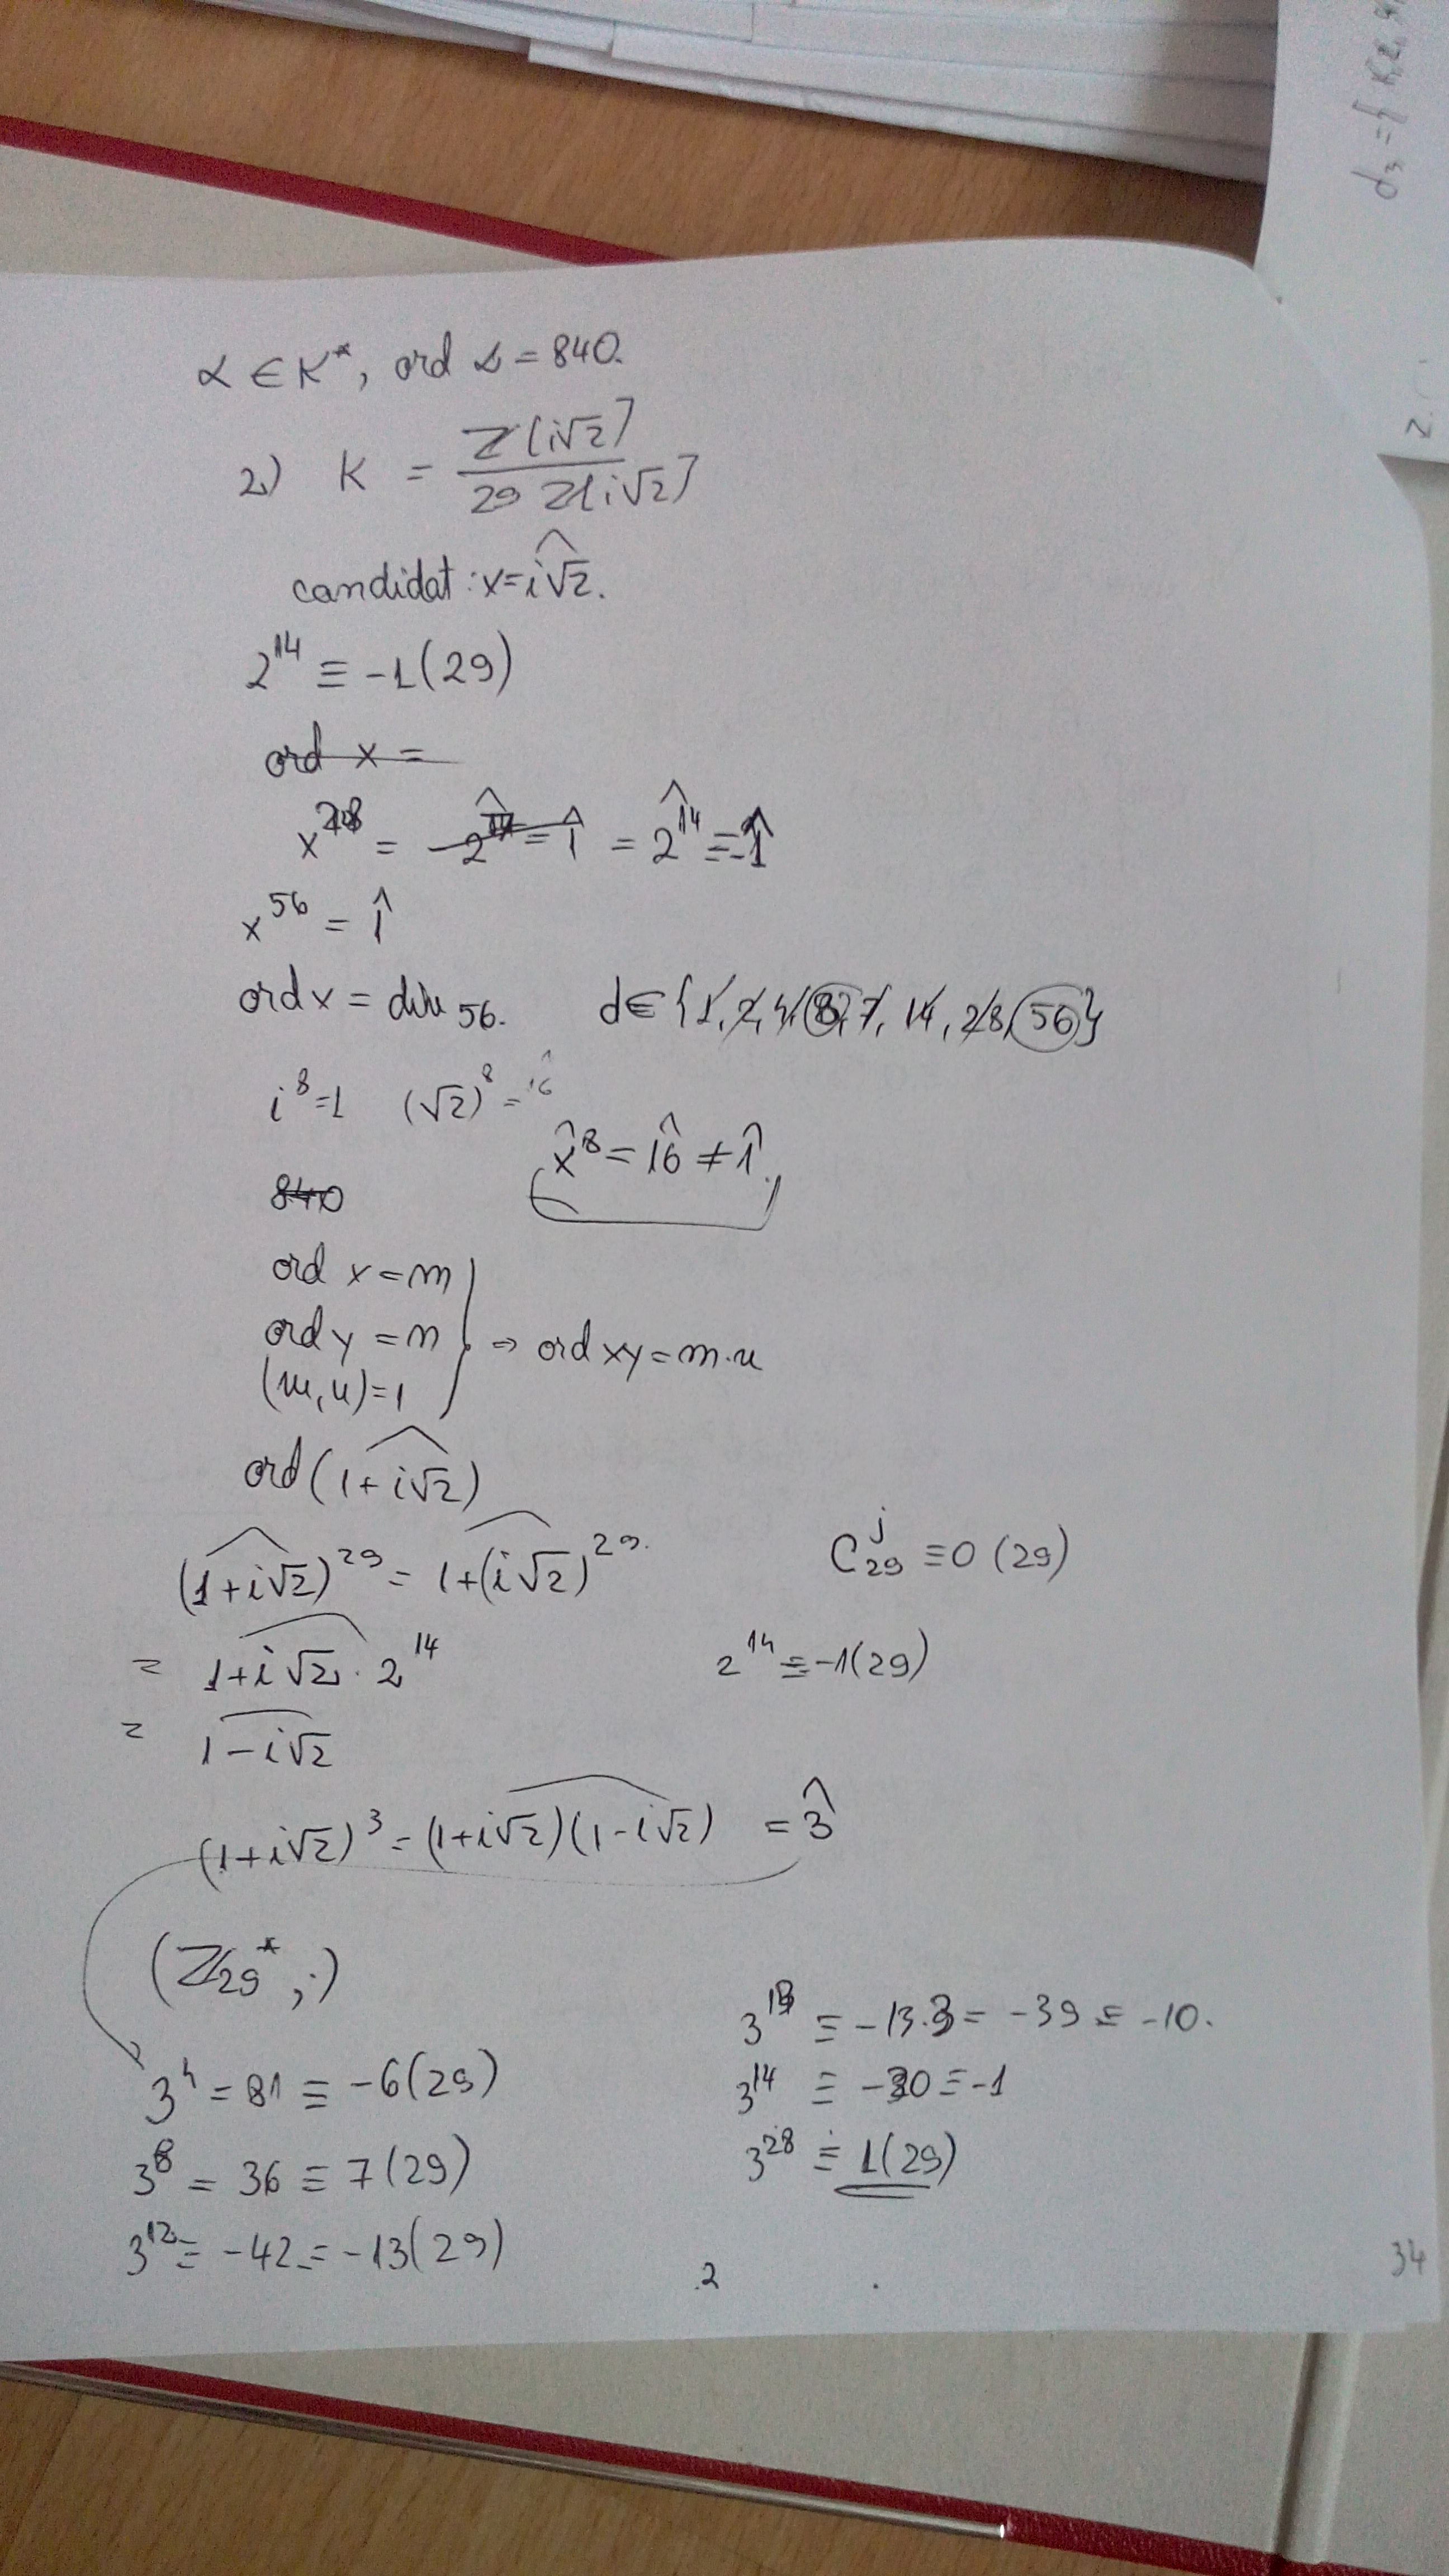 α ∈ K*, ord α = 840.
2) K = Z[i√2] / 29 Z[i√2]
candidat: x = i√2.
2^14 ≡ -1 (29)
ord x =
x^28 = -2^14 = 1̂ = 2̂^14 ≡ -1̂
x^56 = 1̂
ord x = div 56. d ∈ {1, 2, 4, 8, 7, 14, 28, 56}
i^8 = 1 (√2)^8 = 16̂
x̂^8 = 16̂ ≠ 1̂.
840
ord x = m
ord y = n } ⇒ ord xy = m·n
(m, n) = 1
ord (1 + i√2)
(1 + i√2)^29 = 1 + (i√2)^29. C_29^j ≡ 0 (29)
= 1 + i√2 · 2^14 2^14 ≡ -1 (29)
= 1 - i√2
(1 + i√2)^3 = (1 + i√2)(1 - i√2) = 3̂
(Z_29*, ·)
3^4 = 81 ≡ -6 (29)
3^8 = 36 ≡ 7 (29)
3^12 ≡ -42 = -13 (29)
3^13 ≡ -13.3 = -39 ≡ -10.
3^14 ≡ -30 ≡ -1
3^28 ≡ 1 (29)
2
34
d_3 = {
2.